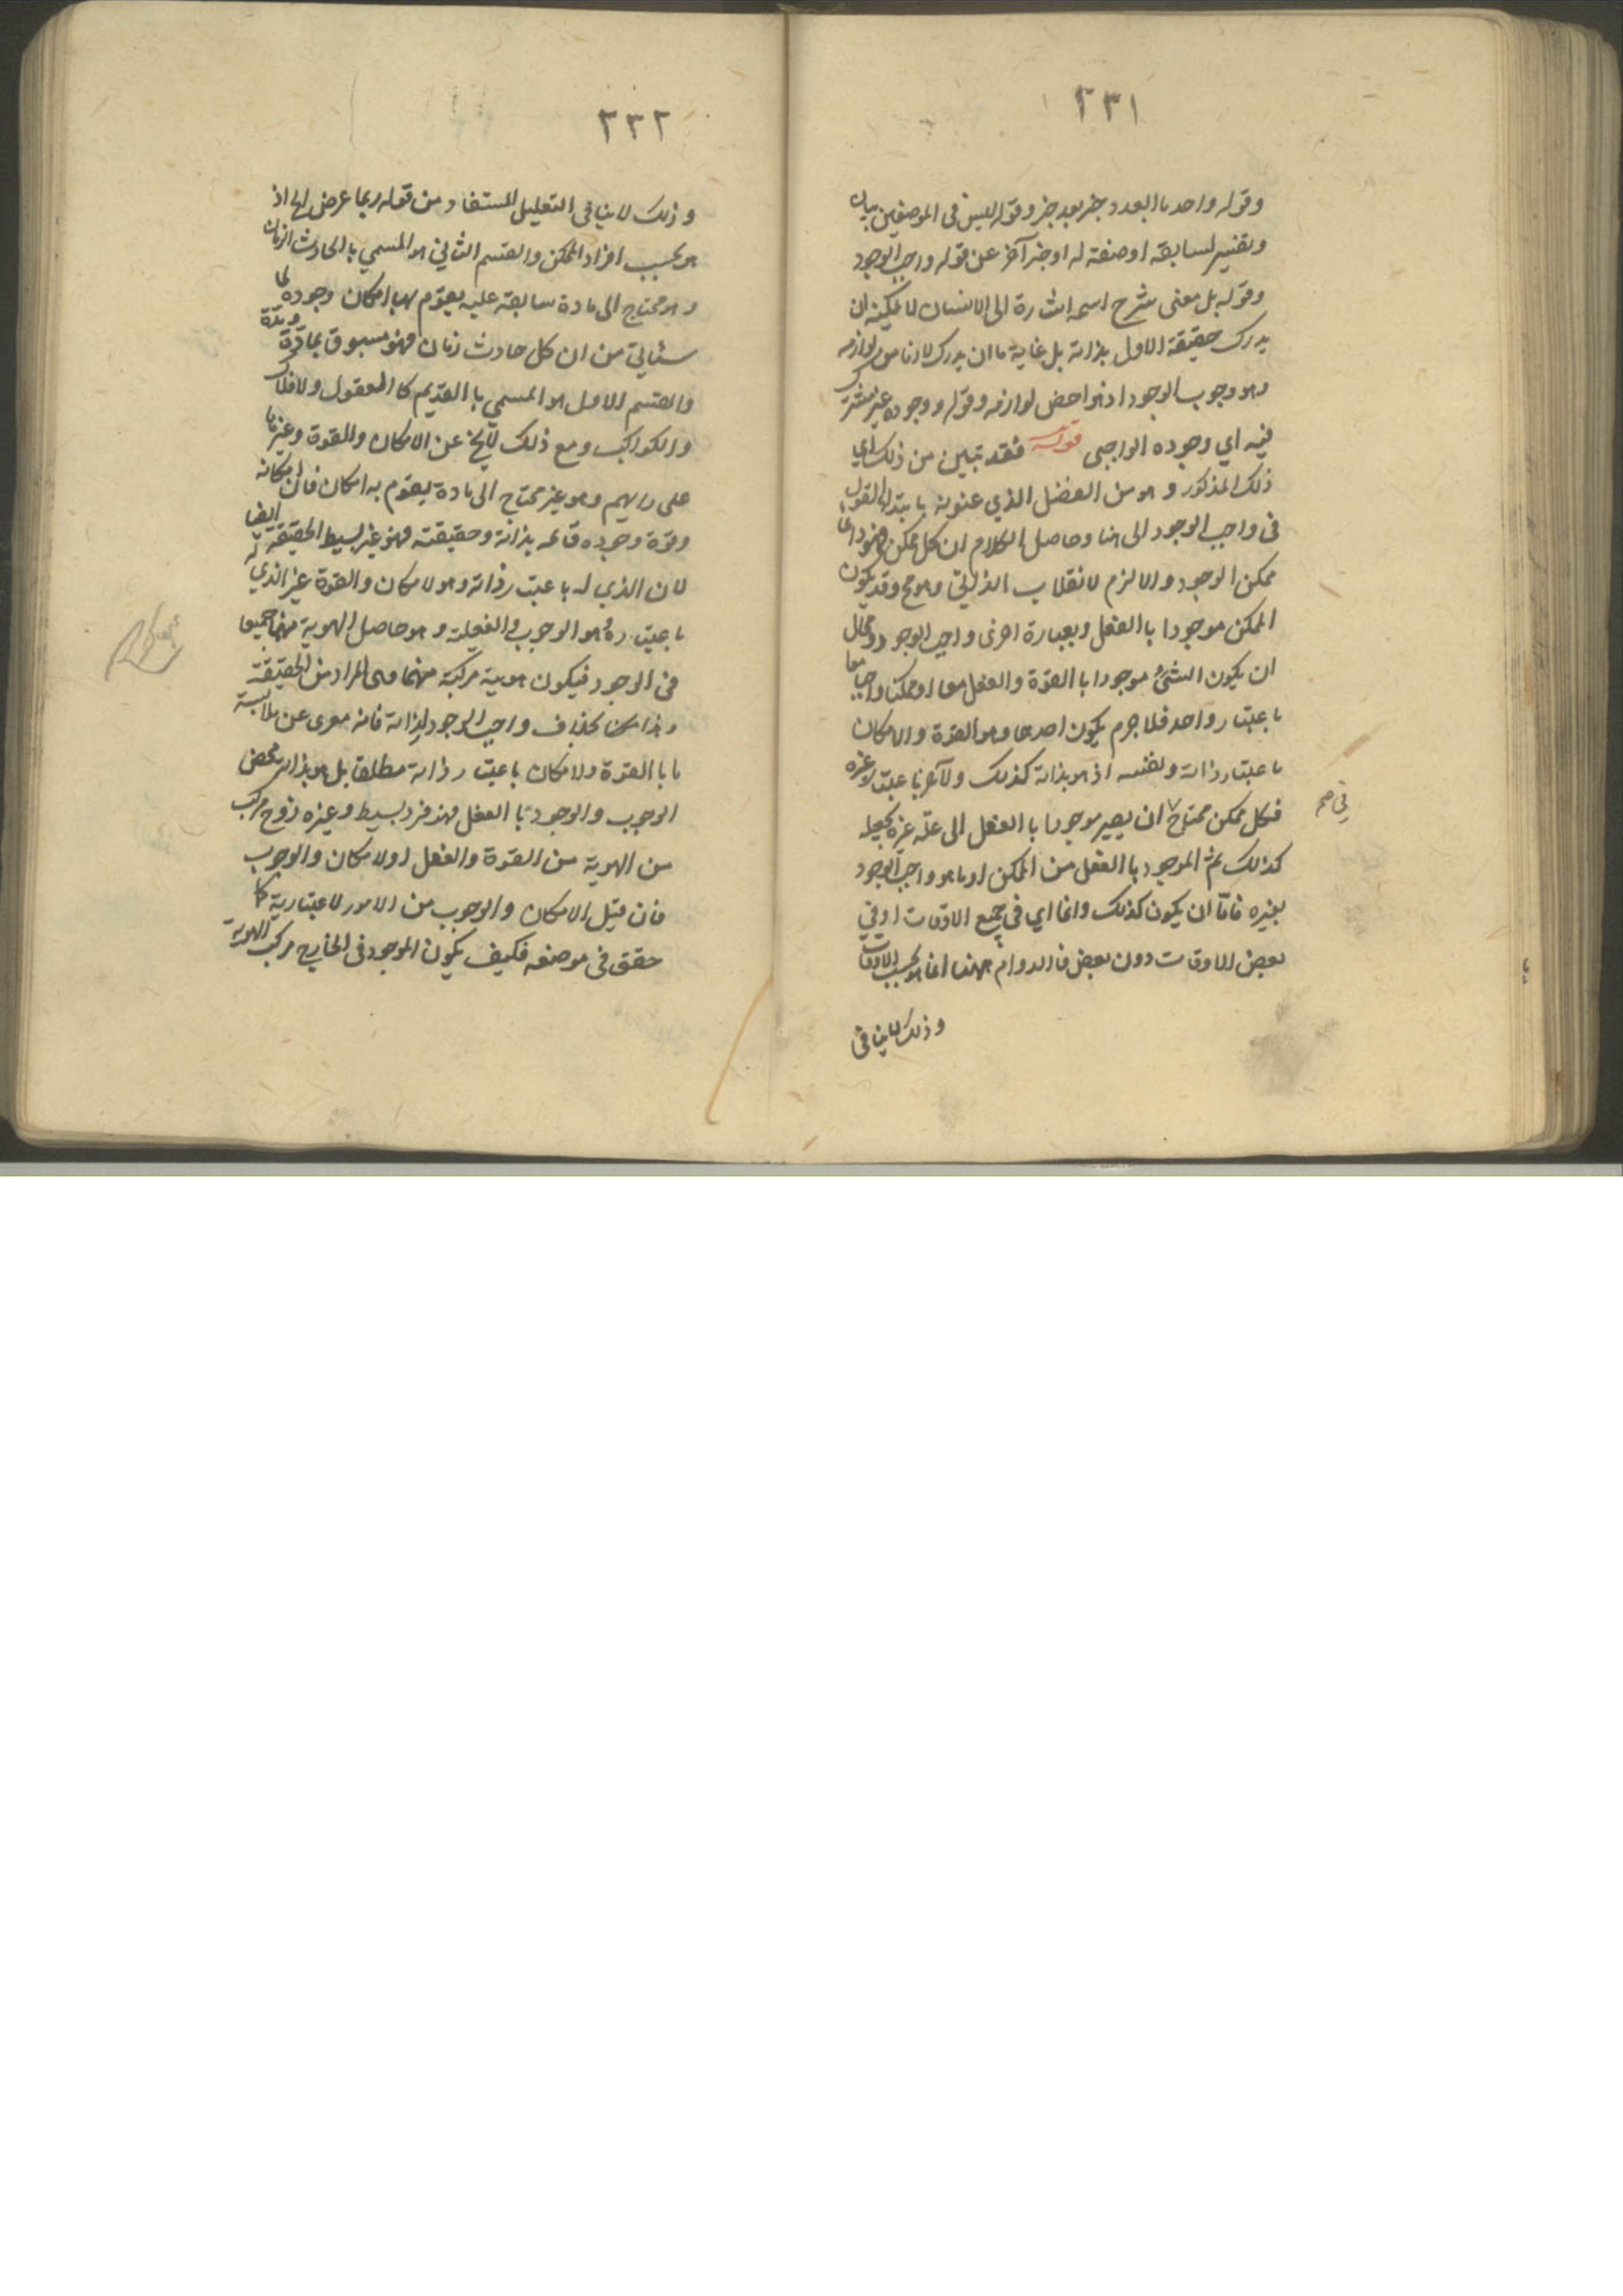 ٢٣١
وقوله واحد بالعدد خبر بعد خبر وقوله ليس فى الموضعين بيان
وتفسير لسابقه او صفة له او خبر آخر عن قوله واجب الوجود
وقوله بل معنى شرح اسمه اشارة الى ان الانسان لا يمكنه ان
يدرك حقيقة الاول بذاته بل غاية ما ان يدرك لازما من لوازمه
وهو وجوب الوجود اذ هو اخص لوازمه وقوله ووجوده غير مشترك
فيه اي وجوده الواجبى قوله فقد تبين من ذلك اي
ذلك المذكور وهو من الفصل الذي عنونه بابتداء القول
فى واجب الوجود الى هنا وحاصل الكلام ان كل ممكن فهو دائما
ممكن الوجود والا لزم الانقلاب الذاتي وهو مح وقد يكون
الممكن موجودا باالفعل وبعبارة اخرى واجب الوجود ومحال
ان يكون الشئ موجودا باالقوة والفعل معا او ممكنا وواجبا معا
باعتبار واحد فلا جرم يكون احدهما وهو القوة والامكان
باعتبار ذاته ونفسه اذ هو بذاته كذلك والآخر باعتبار غيره
فكل ممكن محتاج ان يصير موجودا باالفعل الى علة غيره يجعله
فى صح
كذلك ثم الموجود باالفعل من الممكن او ما هو واجب الوجود
بغيره فامّا ان يكون كذلك دائما اي فى جميع الاوقات او في
بعض الاوقات دون بعض فالدوام ههنا انما هو بحسب الاوقات
وذلك لا ينافى
٢٣٢
وذلك لا ينافى التعليل المستفاد من قوله ربما عرض اه اذ
هو بحسب افراد الممكن والقسم الثاني هو المسمي باالحادث الزمان
وهو محتاج الى مادة سابقة عليه يقوم بها امكان وجوده لما
سيأتي من ان كل حادث زمان فهو مسبوق بمادّة ومدّة
والقسم الاول هو المسمي باالقديم كاالعقول والافلاك
والكواكب ومع ذلك لا يخ عن الامكان والقوة وغيرها
على رايهم وهو غير محتاج الى مادة يقوم به امكان فان امكانه
وقوة وجوده قائمه بذاته وحقيقته فهو غير بسيط الحقيقة ايضا
لان الذي له باعتبار ذاته وهو الامكان والقوة غير الذي له
باعتبار غيره وهو الوجوب والفعلية وهو حاصل الهوية منهما جميعا
فى الوجود فيكون هوية مركبة منهما وهى المراد من الحقيقة
هذا بخلاف واجب الوجود لذاته فانه معرى عن ملابسة
ما باالقوة والامكان باعتبار ذاته مطلقا بل هو بذاته محض
الوجوب والوجود باالفعل فهو فرد بسيط وغيره زوج مركب
من الهوية من القوة والفعل او الامكان والوجوب
فان قيل الامكان والوجوب من الامور الاعتبارية كما
حقق فى موضعه فكيف يكون الموجود فى الخارج مركب الهوية